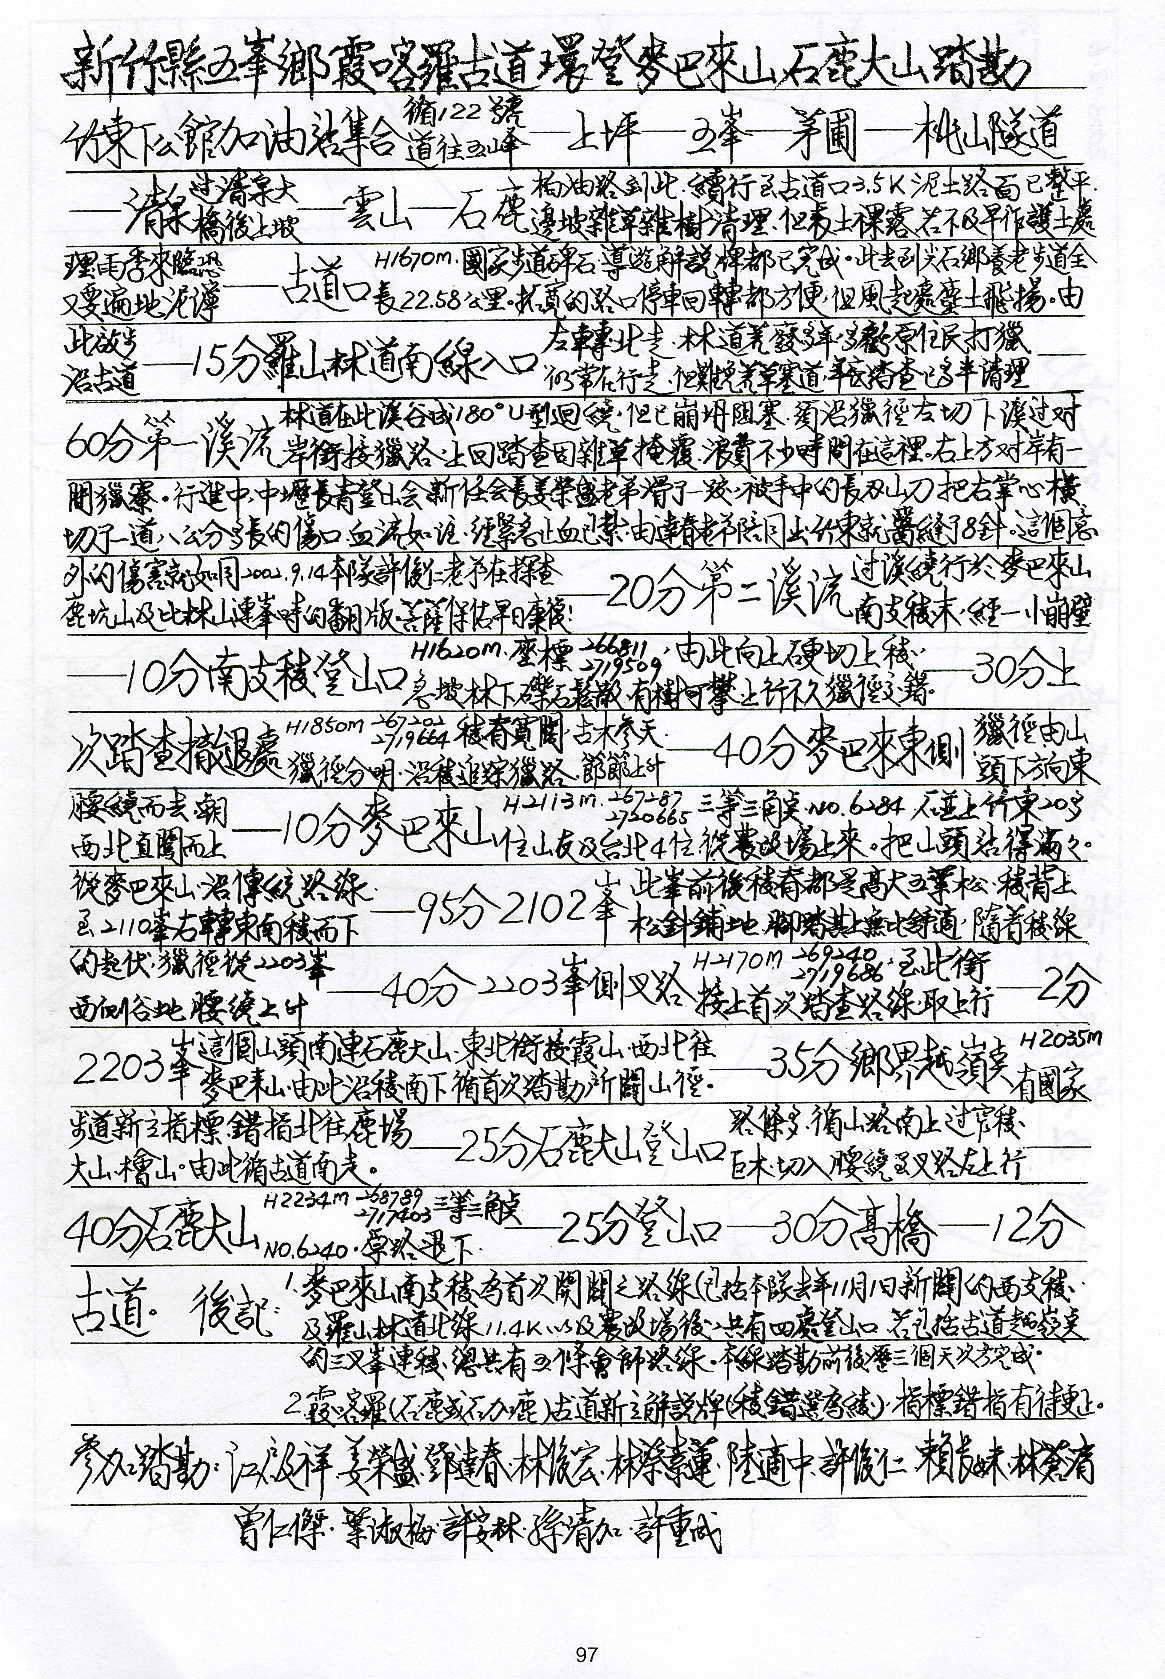 新竹縣五峯鄉霞喀羅古道環登麥巴來山.石鹿大山踏勘
竹東下公館加油站集合 循122號道往五峰——上坪——五峯——茅圃——桃山隧道
——清泉 过清泉大橋後上坡——雲山——石鹿 柏油路到此.續行至古道口3.5K泥土路面已整平.邊坡雜草雜樹清理.但表土裸露.若不及早作護土處
理.雨季來臨恐又要遍地泥濘——古道口 H1670m.國家步道碑石.導遊解説牌都已完成。此去到尖石鄉養老步道全長22.58公里.拓寬的路口停車回轉都方便.但風起處塵土飛揚。由
此放步沿古道——15分羅山林道南線入口 左轉北走.林道荒廢多年.多虧原住民打獵仍常在行走.但難免荒草塞道.年底踏查已多半清理——
60分第一溪流 林道在此溪谷成180°U型迴繞.但已崩坍阻塞.須沿獵徑右切下溪过对岸銜接獵路.上回踏查因雜草掩覆.浪費不少時間在這裡。右上方对岸有一
間獵寮。行進中.中壢長青登山会新任会長姜榮盛老弟滑了一跤.被手中的長刃山刀把右掌心橫
切了一道八公分多長的傷口.血流如注.經緊急止血已紮.由達春老弟陪同出竹東就醫縫了8針。這個意
外的傷害就如同2002.9.14本隊許俊仁老弟在探查鹿坑山及比林山連峯時的翻版.菩薩保佑早日康復!——20分第二溪流 过溪繞行於麥巴來山南支稜末.經一小崩壁
——10分南支稜登山口 H1620m.座標266811 2719509.由此向上硬切上稜.急坡林下礫石鬆散.有樹可攀.上行不久獵徑交錯。——30分上
次踏查撤退處 H1850m 267202 2719664 稜脊寬闊.古木參天.獵徑分明.沿稜追踪獵路.節節上升——40分麥巴來東側 獵徑由山頭下方向東
腰繞而去.朝西北直闖而上——10分麥巴來山 H2113m.267287 2720665 三等三角点NO.6284 碰上竹東20多位山友及台北4位.從農場上來。把山頭站得滿々。
從麥巴來山沿傳統路線.至2110峯右轉東南稜而下——95分2102峯 此峯前後稜脊都是高大五葉松.稜背上松針鋪地.腳踏其上無比舒適.隨著稜線
的起伏.獵徑從2203峯西側谷地腰繞上升——40分2203峯側叉路 H2170m 269240 2719686.至此銜接上首次踏查路線.取上行——2分
2203峯 這個山頭南連石鹿大山.東北銜接霞山.西北往麥巴來山.由此沿稜南下循首次踏勘所闢山徑。——35分鄉界越嶺点 H2035m 有國家
步道新立指標.錯指北往鹿場大山.檜山。由此循古道南走。——25分石鹿大山登山口 路條多.循山路南上过窄稜.巨木.切入腰繞至叉路左上行——
40分石鹿大山 H2234m 268789 2717403 三等三角点NO.6240.原路退下.——25分登山口——30分高橋——12分
古道。 後記: 1.麥巴來山南支稜為首次開闢之路線(包括本隊去年11月1日新闢的西支稜.
及羅山林道北線11.4K以及農場後.共有四處登山口.若包括古道越嶺点
的三叉峯連稜.總共有五條會師路線。本線踏勘前後歷三個天次方完成。
2.霞喀羅(石鹿或石加鹿)古道新立解説牌(稜錯選為綾).指標錯指有待更正。
参加踏勘:江 祥.姜榮盛.鄧達春.林俊宏.林 蓮.陸適中.許俊仁.賴長妹.林蒼清
曾仁傑.葉淑梅.許安林.孫清加.許重成
97